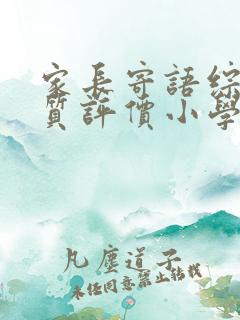 家長寄語綜
質評價小學
凡塵道子
未经同意禁止转载